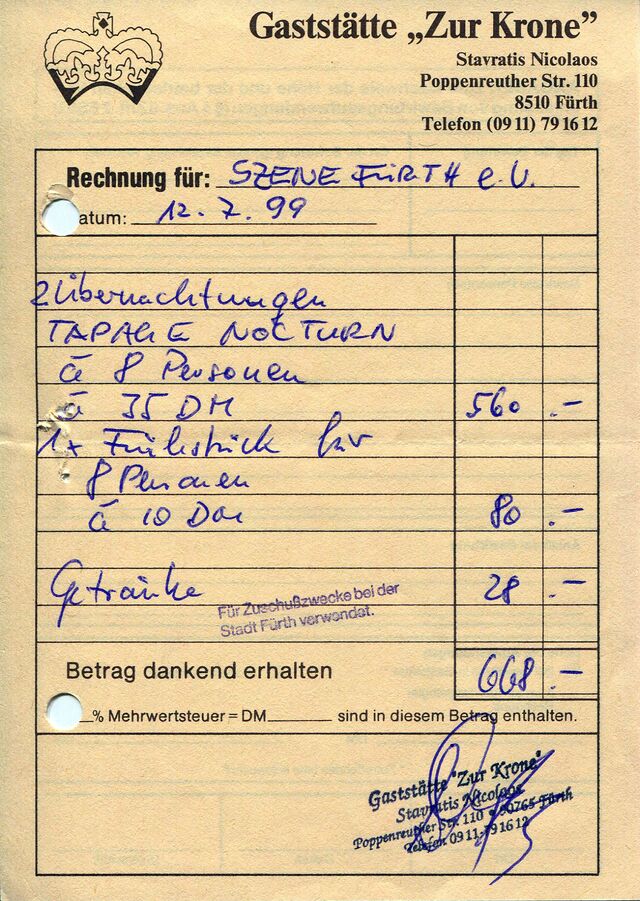 Gaststätte „Zur Krone”
Stavratis Nicolaos
Poppenreuther Str. 110
8510 Fürth
Telefon (09 11) 79 16 12
Rechnung für: SZENE FÜRTH e.V.
atum: 12.7.99
2 Übernachtungen
TAPAGE NOCTURN
à 8 Personen
à 35 DM 560.-
1x Frühstück für
8 Personen
à 10 DM 80.-
Getränke 28.-
Für Zuschußzwecke bei der
Stadt Fürth verwendet.
Betrag dankend erhalten 668.-
% Mehrwertsteuer = DM sind in diesem Betrag enthalten.
Gaststätte "Zur Krone"
Stavratis Nicolaos
Poppenreuther Str. 110 • 90765 Fürth
Telefon 0911-791612